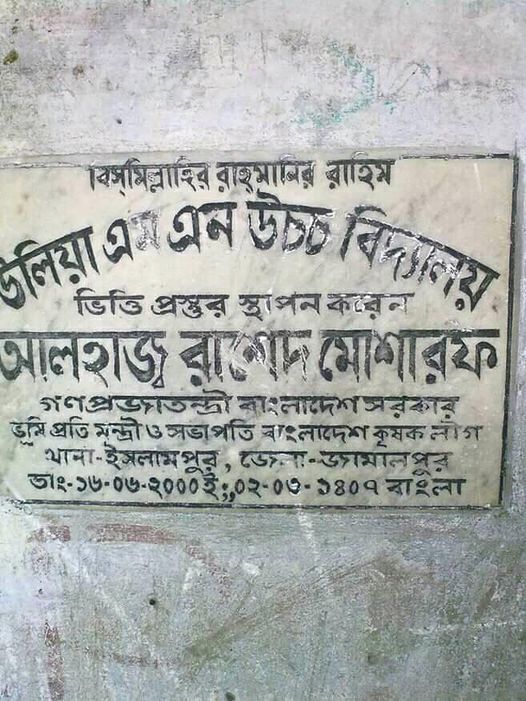 বিস্‌মিল্লাহির রাহমানির রাহিম
উলিয়া এম এন উচ্চ বিদ্যালয়
ভিত্তি প্রস্তুর স্থাপন করেন
আলহাজ্ব রাশেদ মোশারফ
গণপ্রজাতন্ত্রী বাংলাদেশ সরকার
ভূমি প্রতি মন্ত্রী ও সভাপতি বাংলাদেশ কৃষক লীগ
থানা-ইসলামপুর, জেলা-জামালপুর
তাং-১৬-০৬-২০০০ইং,,০২-০৩-১৪০৭ বাংলা